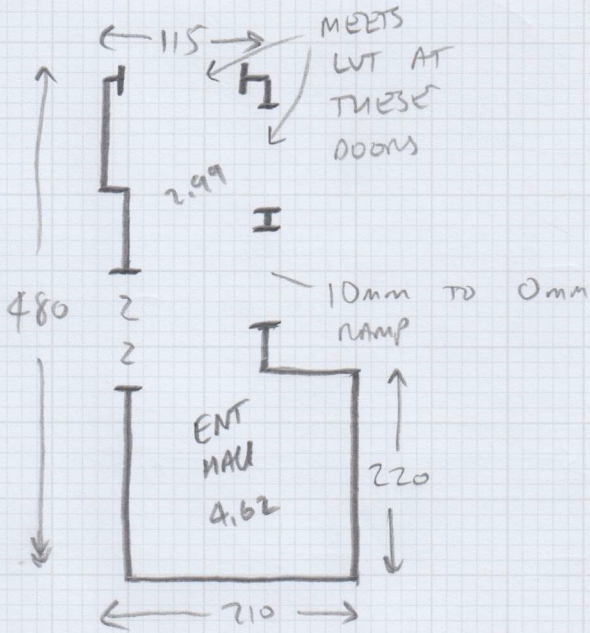 115
MEETS
LVT AT
THESE
DOORS
2.99
480
2
2
10mm TO 0mm
RAMP
ENT
HALL
4.62
220
210